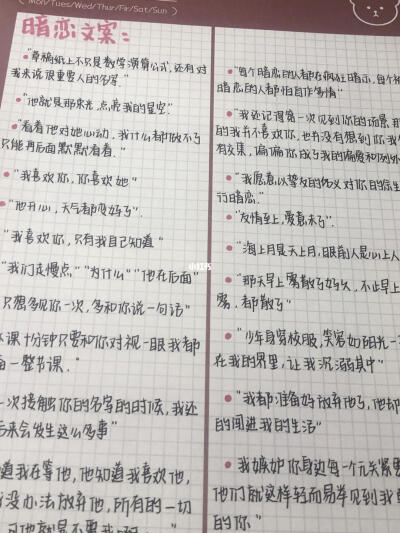 ( Mon/Tues/Wed/Thur/Fri/Sat/Sun )
暗恋文案：
"草稿纸上不只是数学演算公式，还有对
我来说很重要人的名字."
"他就是那束光，点亮我的星空."
"看着他对她心动，我什么都做不了
只能再后面默默看着."
"我喜欢你，你喜欢她"
"他开心，天气都
"我喜欢你，只有我自己知道"
"我们走慢点""为什么""他在后面"
只想多见你一次，多和你说一句话"
课十分钟只要和你对视一眼我都
一整节课."
次接触你的名字的时候，我还
后来会发生这么多事"
道我在等他，他知道我喜欢他，
没办法放弃他，所有的一切
"每个暗恋的人都在疯狂暗示，每个被
暗恋的人都怕自作多情"
"我还记得第一次见到你的场景，那
的我并不喜欢你，也并没有想到你我
有交集，偏偏你成了我的偏爱和例外
"我愿意以挚友的名义对你的
行暗恋."
"友情至上，爱意未了".
"海上月是天上月，眼前人是心上人
"那天早上雾散了
雾，都散了"
"少年身穿校服，笑容如阳光一
在我的界里，让我沉溺其中"
"我都准备
放弃他了，他却
的闯进我的生活"
"我嫉妒你身边每一个无关紧要
他们就这样轻而易举见到我
的你"
小红书